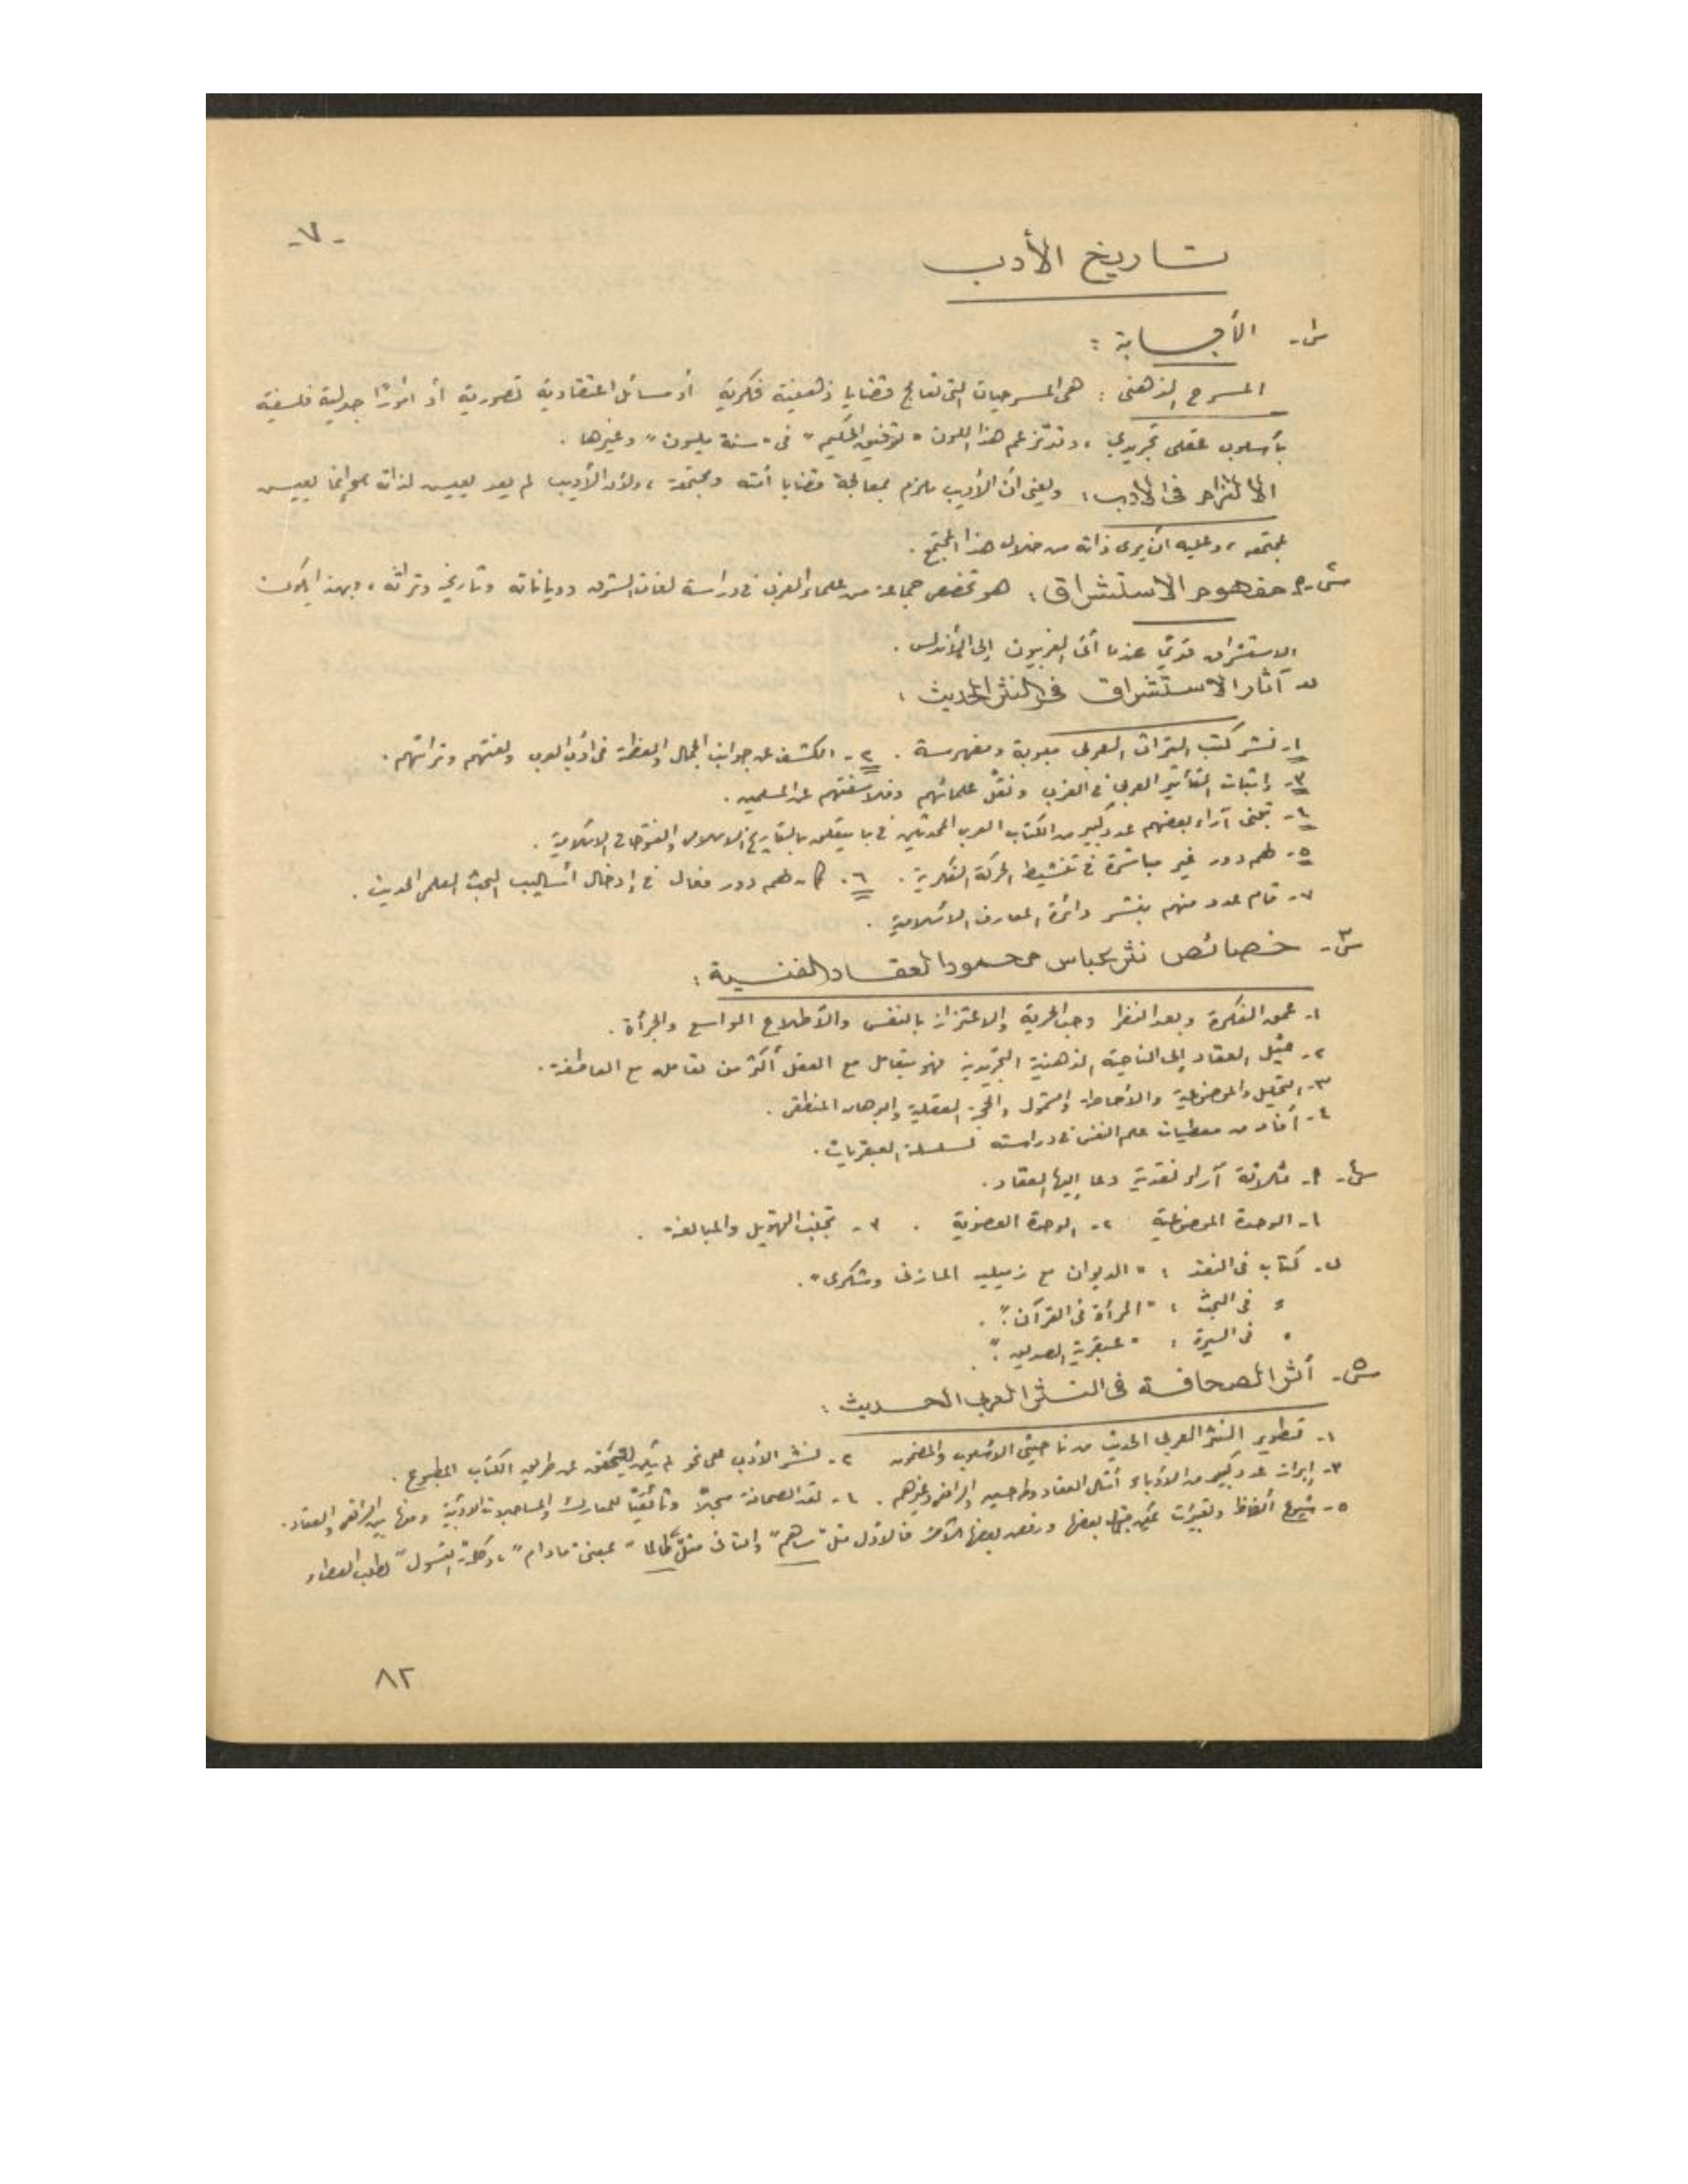 -٧-
تاريخ الأدب
س١- الأجابة :
المسرح الذهنى : هى المسرحيات التى تعالج قضايا ذهنية فكرية أو مسائل اعتقادية تصورية أو أمورًا جدلية فلسفية
بأسلوب عقلى تجريدي ، وقد تزعم هذا اللون "توفيق الحكيم" فى "سنة مليون" وغيرها .
الالتزام فى الأدب : ويعنى أن الأديب ملزم بمعالجة قضايا أمته ومجتمعه ، ولأن الأديب لم يعد يعيش لذاته وإنما يعيش
لمجتمعه ، وعليه أن يرى ذاته من خلال هذا المجتمع .
س٢- مفهوم الاستشراق : هو تخصص جماعة من علماء الغرب فى دراسة لغات الشرق ودياناته وتاريخه وتراثه ، وبهذا يكون
الاستشراق قديمًا عندما أتى الغربيون إلى الأندلس .
ب- آثار الاستشراق فى النثر الحديث :
١- نشر كتب التراث العربى مبوبة ومفهرسة . ٢- الكشف عن جوانب الجمال والعظمة فى أدب العرب ولغتهم وتراثهم .
٣- إثبات التأثير العربى فى الغرب ونقل علمائهم وفلاسفتهم عن المسلمين .
٤- تبنى آراء بعضهم عدد كبير من الكتاب العرب المحدثين فى ما يتعلق بالتاريخ الإسلامى والفتوحات الإسلامية .
٥- لهم دور غير مباشرة فى تنشيط الحركة الفكرية . ٦- كان لهم دور فعال فى إدخال أساليب البحث العلمى الحديث .
٧- قام عدد منهم بنشر دائرة المعارف الإسلامية .
س٣- خصائص نثر عباس محمود العقاد الفنية :
١- عمق الفكرة وبعد النظر وحب الحرية والاعتزاز بالنفس والأطلاع الواسع والجرأة .
٢- ميل العقاد إلى الناحية الذهنية التجريدية فهو يتعامل مع العقل أكثر من تعامله مع العاطفة .
٣- التحليل والموضوعية والأحاطة والشمول والحجج العقلية والبرهان المنطقى .
٤- أفاد من معطيات علم النفس فى دراسته لسلسلة العبقريات .
س٤- أ- ثلاثة آراء نقدية دعا إليها العقاد .
١- الوحدة الموضوعية ٢- الوحدة العضوية . ٣- تجنب التهويل والمبالغة .
ب- كتاب فى النقد : "الديوان مع زميليه المازنى وشكرى" .
= فى البحث : "المرأة فى القرآن" .
= فى السيرة : "عبقرية الصديق" .
س٥- أثر الصحافة فى النثر العربى الحديث :
١- تطوير النثر العربى الحديث من ناحيتى الأسلوب والمضمون ٢- نشر الأدب على نحو لم يكن ليتحقق عن طريق الكتاب المطبوع .
٣- إبراز عدد كبير من الأدباء أمثال العقاد وطه حسين والرافعى وغيرهم . ٤- تعد الصحافة سجلاً وثائقيًا للمعارك والمساجلات الأدبية ومنها بين الرافعى والعقاد .
٥- شيوع ألفاظ وتعبيرات بعضها ورفض بعضها الآخر فالأول مثل "ساهم" والثانى مثل "طالما" بمعنى "مادام" ، وكلمة "التسول" لطلب العطاء
٨٢